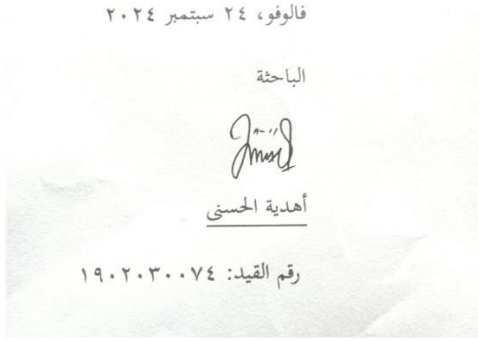 فالوفو، ٢٤ سبتمبر ٢٠٢٤
الباحثة
أهدية الحسنى
رقم القيد: ١٩٠٢٠٣٠٠٧٤